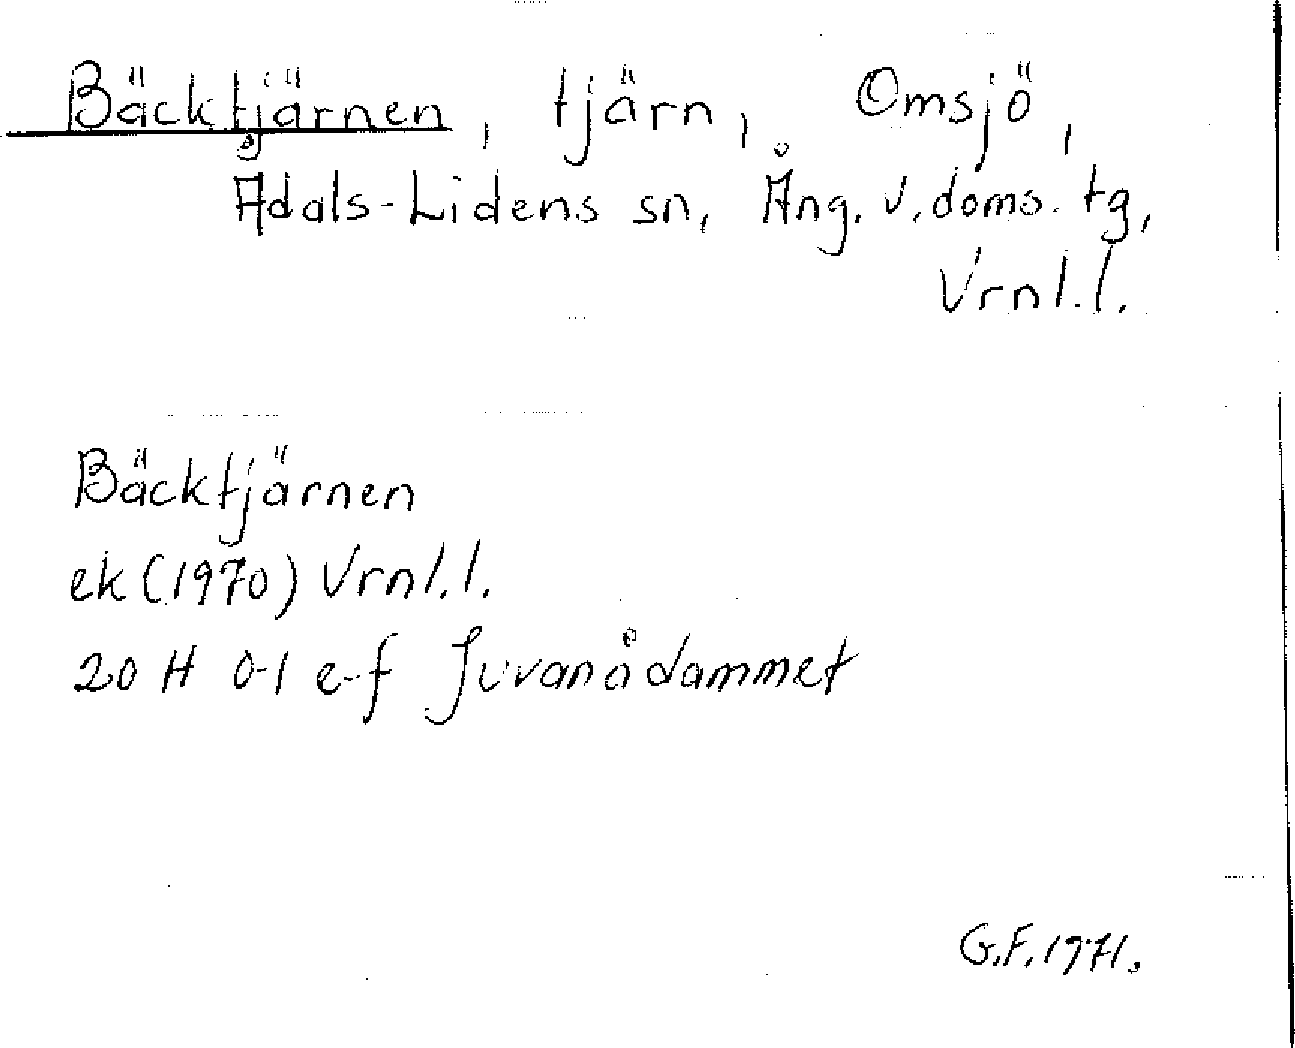 Bäcktjärnen, tjärn, Omsjö,
Ådals-Lidens sn, Ång. v. doms. tg,
Vrnl.l.
Bäcktjärnen
ek (1970) Vrnl.l.
20 H 0-1 e-f Juvanådammet
G.F. 1971.